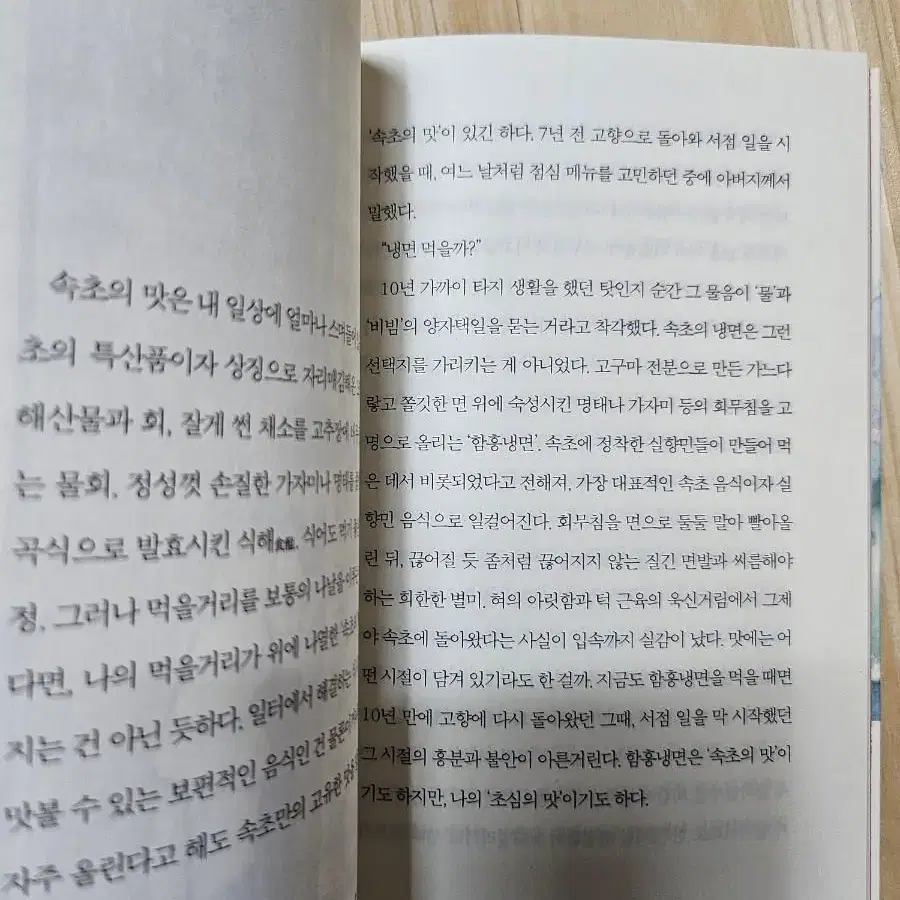 속초의 맛은 내 일상에 얼마나
초의 특산품이자 상징으로 자리매김해온
해산물과 회, 잘게 썬 채소를 고추장에
는 물회, 정성껏 손질한 가자미나 명태를
곡식으로 발효시킨 식해, 식어도
정. 그러나 먹을거리를 보통의 나날을
다면, 나의 먹을거리가 위에 나열한
지는 건 아닌 듯하다. 일터에서 해결하는
맛볼 수 있는 보편적인 음식인 건
자주 올린다고 해도 속초만의 고유한
'속초의 맛'이 있긴 하다. 7년 전 고향으로 돌아와 서점 일을 시
작했을 때, 여느 날처럼 점심 메뉴를 고민하던 중에 아버지께서
말했다.
"냉면 먹을까?"
10년 가까이 타지 생활을 했던 탓인지 순간 그 물음이 '물'과
'비빔'의 양자택일을 묻는 거라고 착각했다. 속초의 냉면은 그런
선택지를 가리키는 게 아니었다. 고구마 전분으로 만든 가느다
랗고 쫄깃한 면 위에 숙성시킨 명태나 가자미 등의 회무침을 고
명으로 올리는 '함흥냉면'. 속초에 정착한 실향민들이 만들어 먹
은 데서 비롯되었다고 전해져, 가장 대표적인 속초 음식이자 실
향민 음식으로 일컬어진다. 회무침을 면으로 둘둘 말아 빨아올
린 뒤, 끊어질 듯 좀처럼 끊어지지 않는 질긴 면발과 씨름해야
하는 희한한 별미. 혀의 아릿함과 턱 근육의 욱신거림에서 그제
야 속초에 돌아왔다는 사실이 입속까지 실감이 났다. 맛에는 어
떤 시절이 담겨 있기라도 한 걸까. 지금도 함흥냉면을 먹을 때면
10년 만에 고향에 다시 돌아왔던 그때, 서점 일을 막 시작했던
그 시절의 흥분과 불안이 아른거린다. 함흥냉면은 '속초의 맛'이
기도 하지만, 나의 '초심의 맛'이기도 하다.